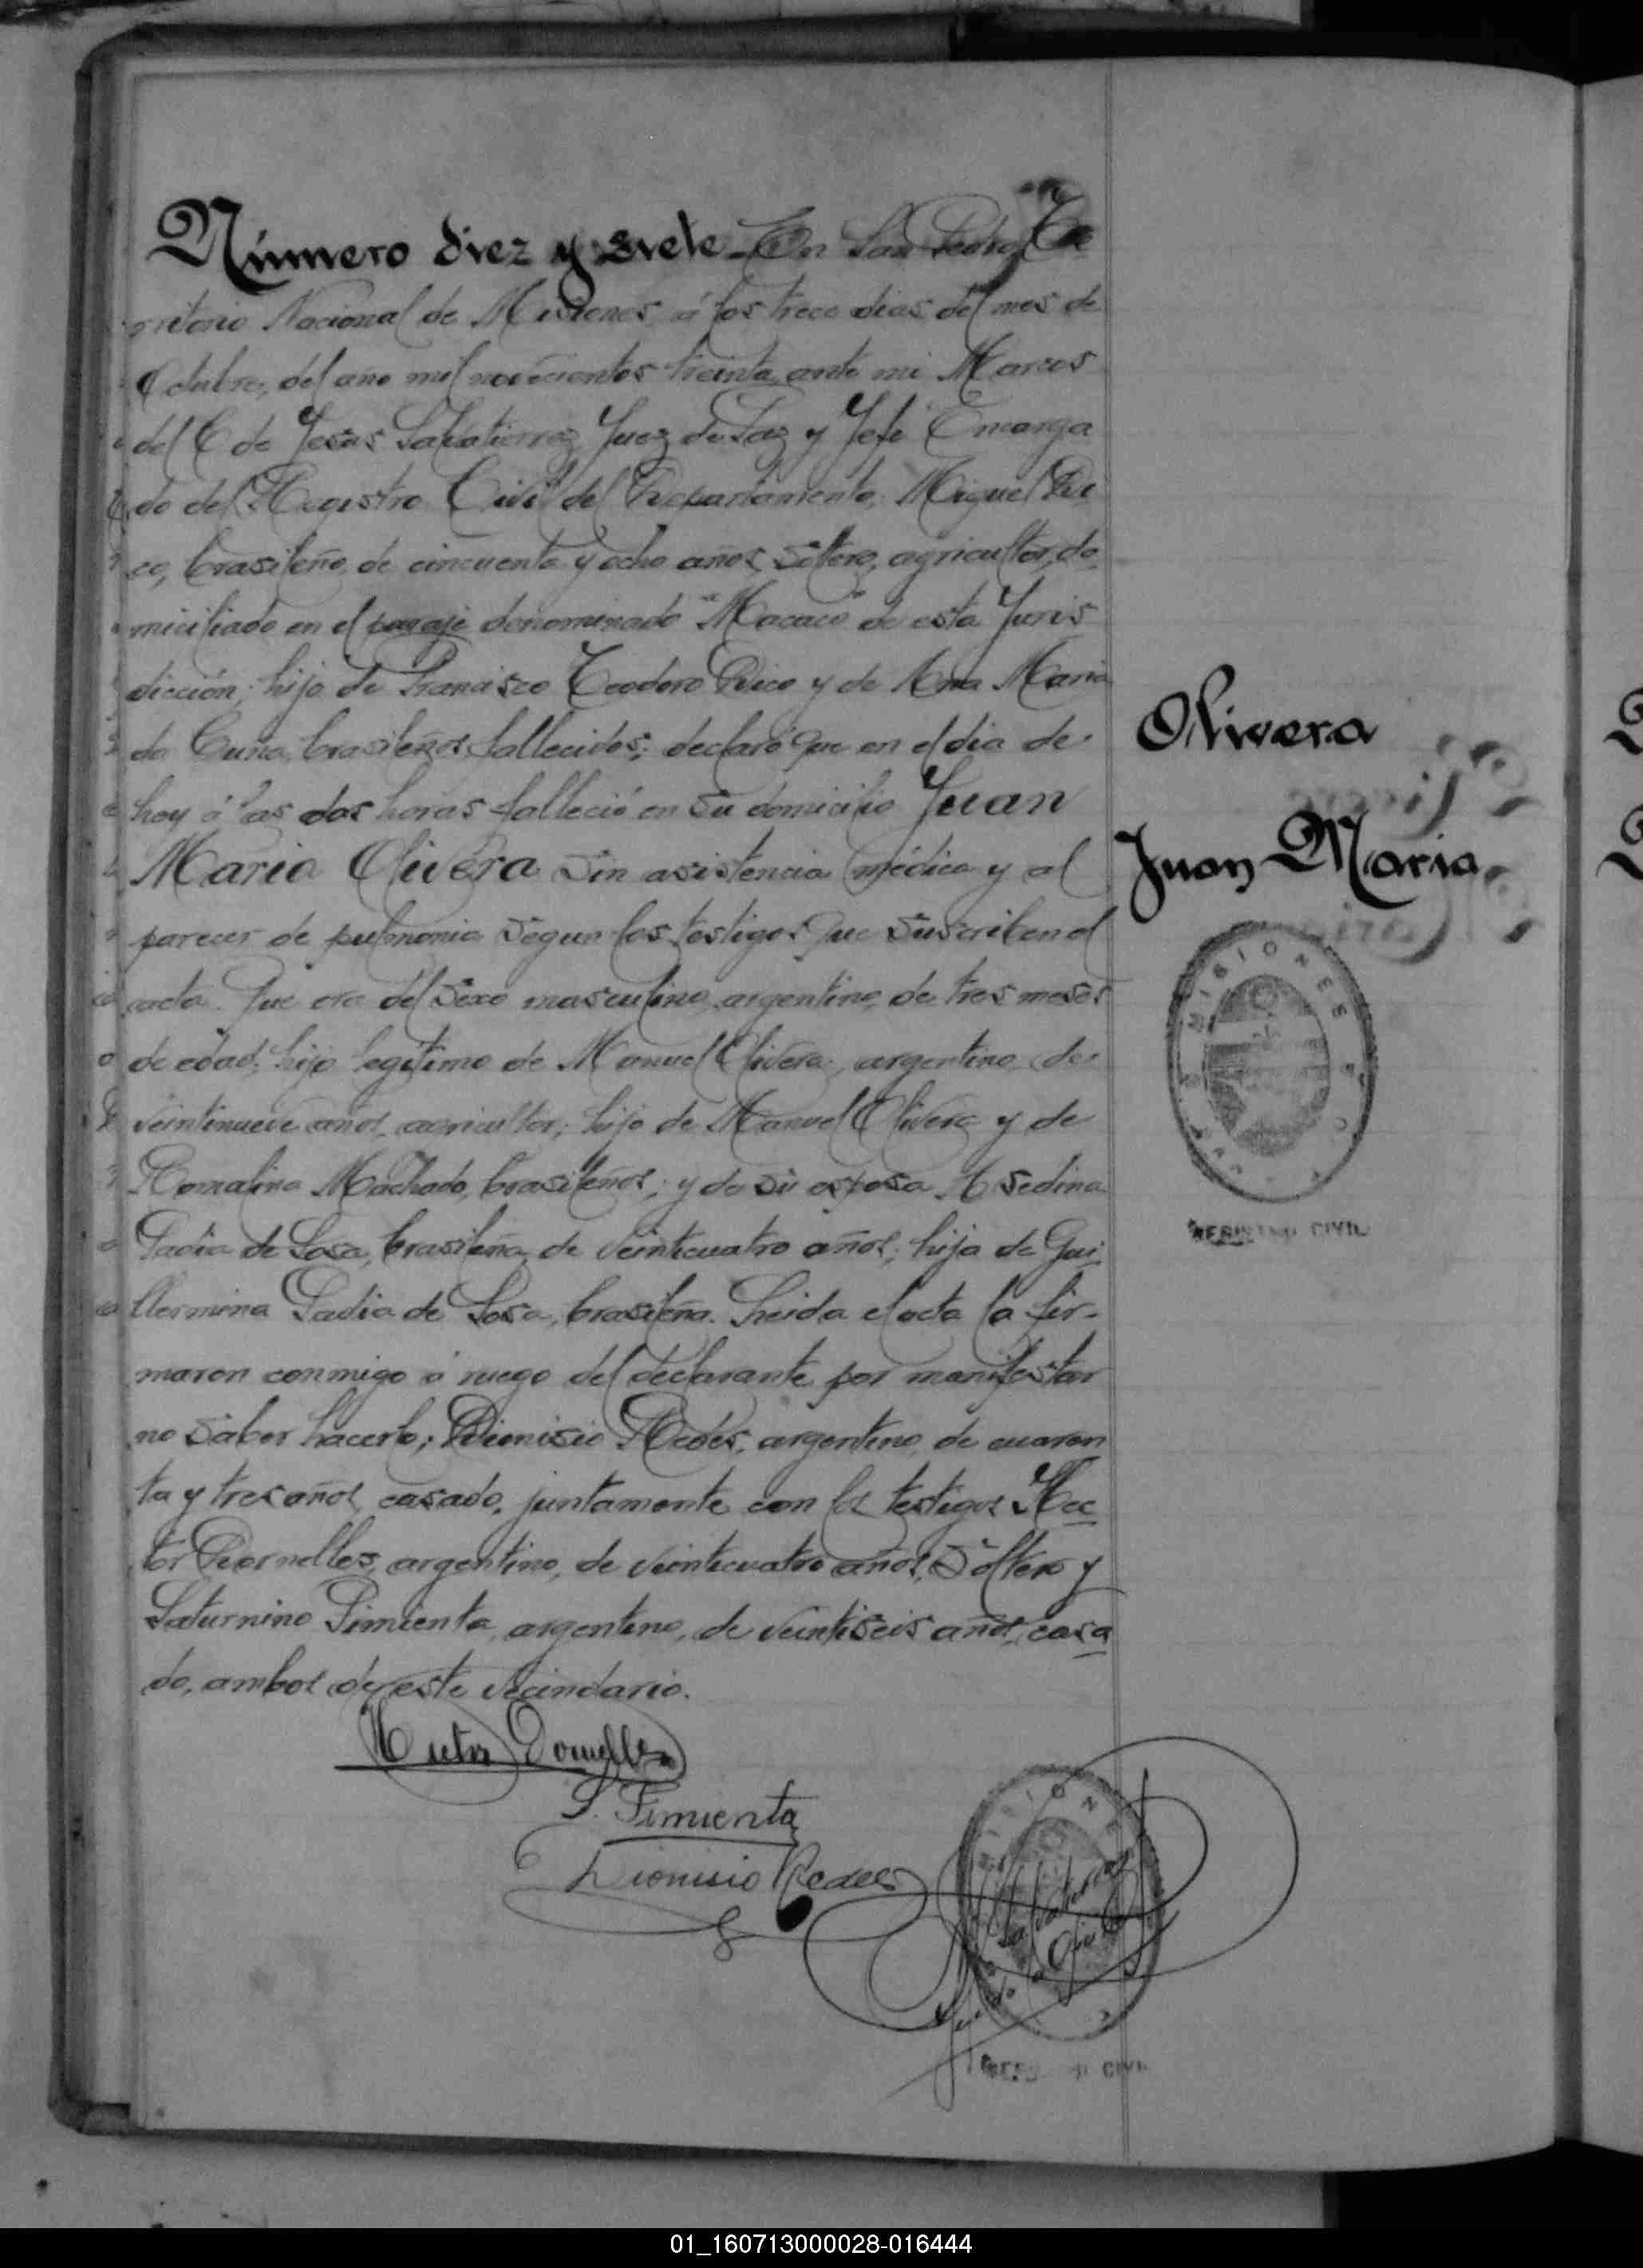 Número diez y siete. En San Pedro, Te
rritorio Nacional de Misiones á los trece dias del mes de
Octubre, del año mil novecientos treinta, ante mi Marcos
del C de Jesús Salvatierra, Juez de Paz y Jefe Encarga
do del Registro Civil del Departamento, Miguel Ri
co, brasileño, de cincuenta y ocho años, soltero, agricultor, do
miciliado en el paraje denominado "Macaco" de esta Juris
dicción, hijo de Francisco Teodoro Rico y de Ana Maria
da Cuña, brasileños, fallecidos; declaró: Que en el dia de
hoy á las dos horas falleció en su domicilio Juan
Maria Olivera sin asistencia médica y al
parecer de pulmonia segun los testigos que suscriben el
acta. Que era del sexo masculino, argentino, de tres meses
de edad, hijo legítimo de Manuel Olivera, argentino, de
veintinueve años, agricultor, hijo de Manuel Olivera y de
Romalina Machado, brasileños; y de su esposa Asedina
Padia de Sosa, brasileña, de veinticuatro años, hija de Gui
llermina Padia de Sosa, brasileña. Leida el acta la fir-
maron conmigo á ruego del declarante por manifestar
no saber hacerlo; Dionisio Redes, argentino, de cuaren
ta y tres años, casado, juntamente con los testigos Hec
tor Dornelles, argentino, de veinticuatro años, soltero y
Saturnino Pimienta, argentino, de veintiseis años, casa
do, ambos de este vecindario.
Olivera
Juan Maria
MISIONES
REGISTRO CIVIL
Hector Dornelles
S. Pimienta
Dionisio Redes
Salvatierra